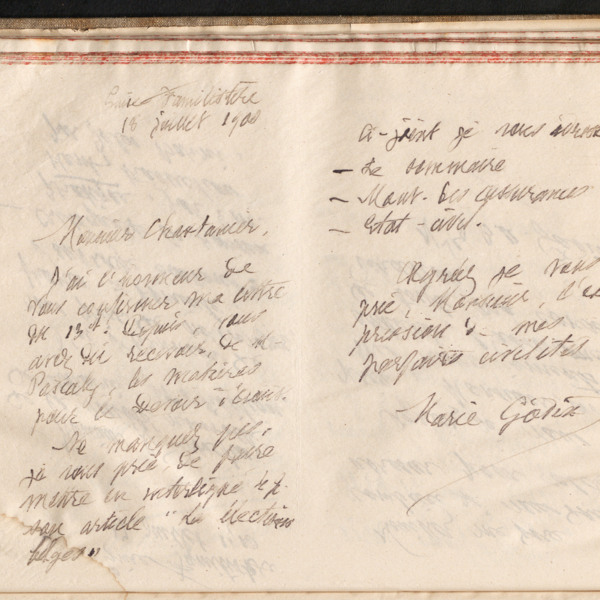 Guise Familistère
18 juillet 1900
Monsieur Chastanier,
J'ai l'honneur de
vous confirmer ma lettre
du 13 ct. Depuis, vous
avez dû recevoir, de M.
Pascaly, les matières
pour le Devoir
Ne manquez pas,
je vous prie, de faire
mettre en interligne
son article " Les élections
belges "
Ci-joint je vous
- Le sommaire
- Mout. des assurances
- Etat-civil.
Agréez je vous
prie, Monsieur, l'ex
pression de mes
parfaites civilités
Marie Godin